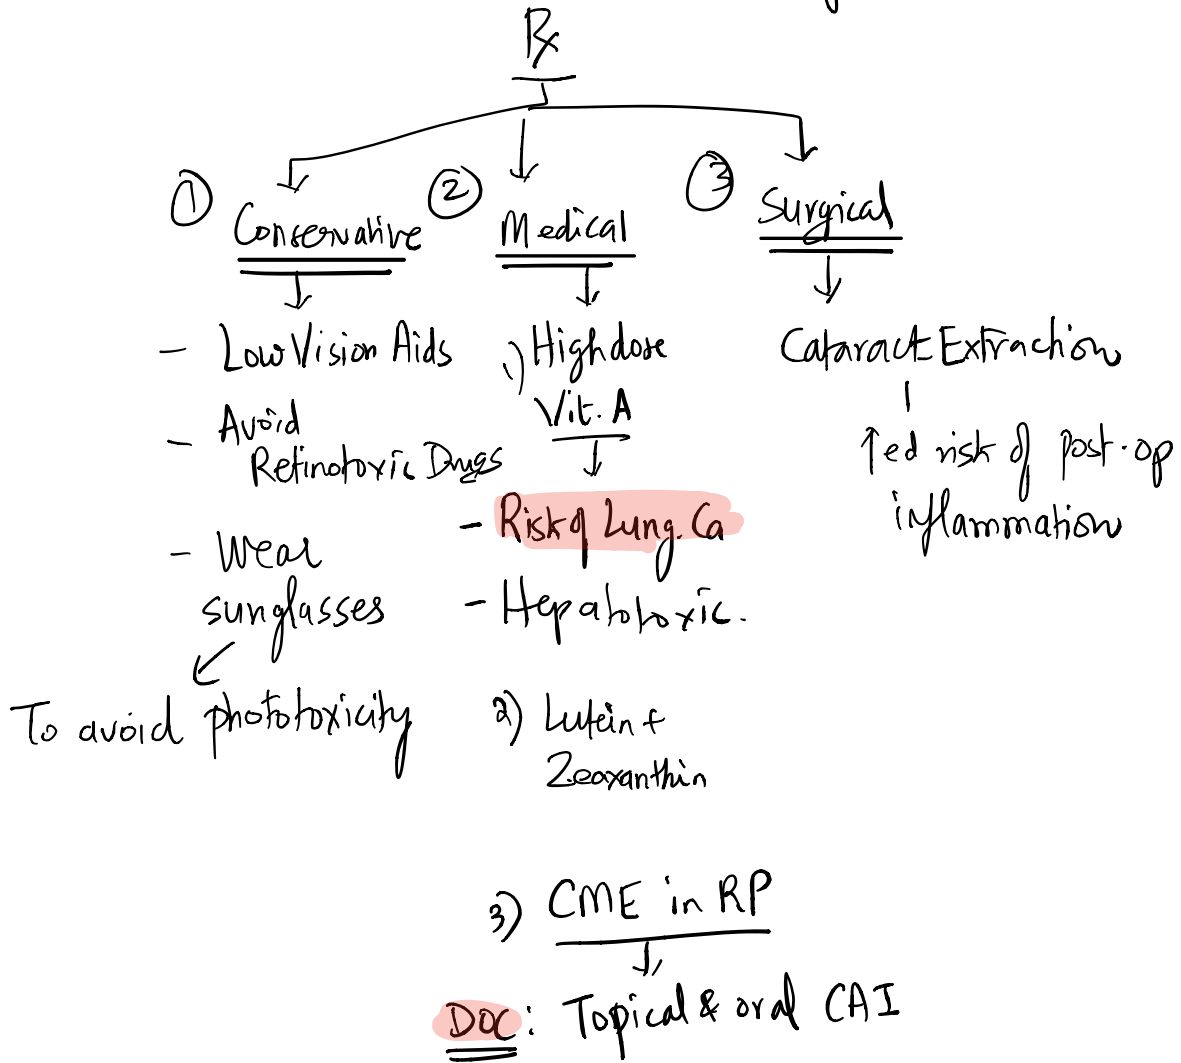 Rx
① Conservative
- Low Vision Aids
- Avoid
Retinotoxic Drugs
- Wear
sunglasses
To avoid phototoxicity
② Medical
1) High dose
Vit. A
- Risk of Lung. Ca
- Hepatotoxic.
2) Lutein +
Zeaxanthin
3) CME in RP
DOC: Topical & oral CAI
③ Surgical
Cataract Extraction
↑ed risk of post-op
inflammation